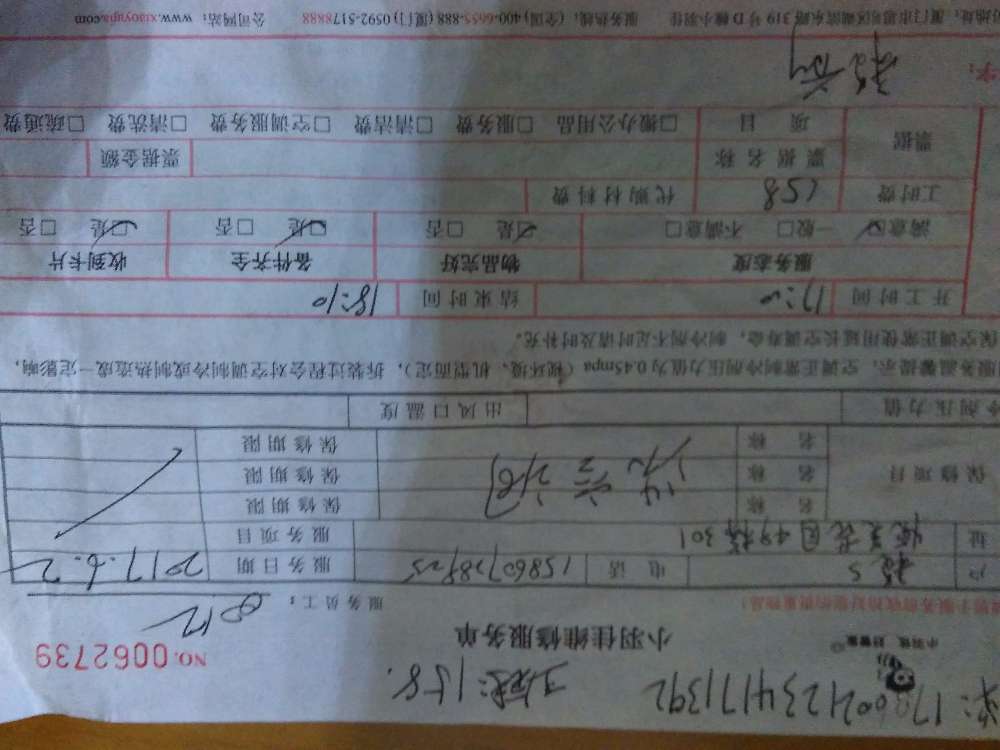 1706021234171392
158.
小羽佳维修服务单
NO. 0062739
服务员工：
户 电话 服务日期 2017.6.2
址 花园49栋301 服务项目
保修项目 名称 洗空调 保修期限
名称 保修期限
名称 保修期限
压力值 出风口温度
服务温馨提示：空调正常制冷剂压力值为0.45mpa（视环境、机型而定），拆装过程会对空调制冷或制热造成一定影响，
保空调正常使用延长空调寿命，制冷剂不足时请及时补充。
开工时间 结束时间 18:10
服务态度 物品完好 备件齐全 收到卡片
☑满意 □一般 □不满意 ☑是 □否 ☑是 □否 ☑是 □否
工时费 158 代购材料费
票据 票据名称 票据金额
项目 □搬办公用品 □服务费 □清洁费 □空调服务费 □清洗费 □疏通费
字：
319号D幢小羽佳 服务热线：(全国)400-6655-888 (厦门)0592-5178888 公司网站：www.xiaoyujia.com